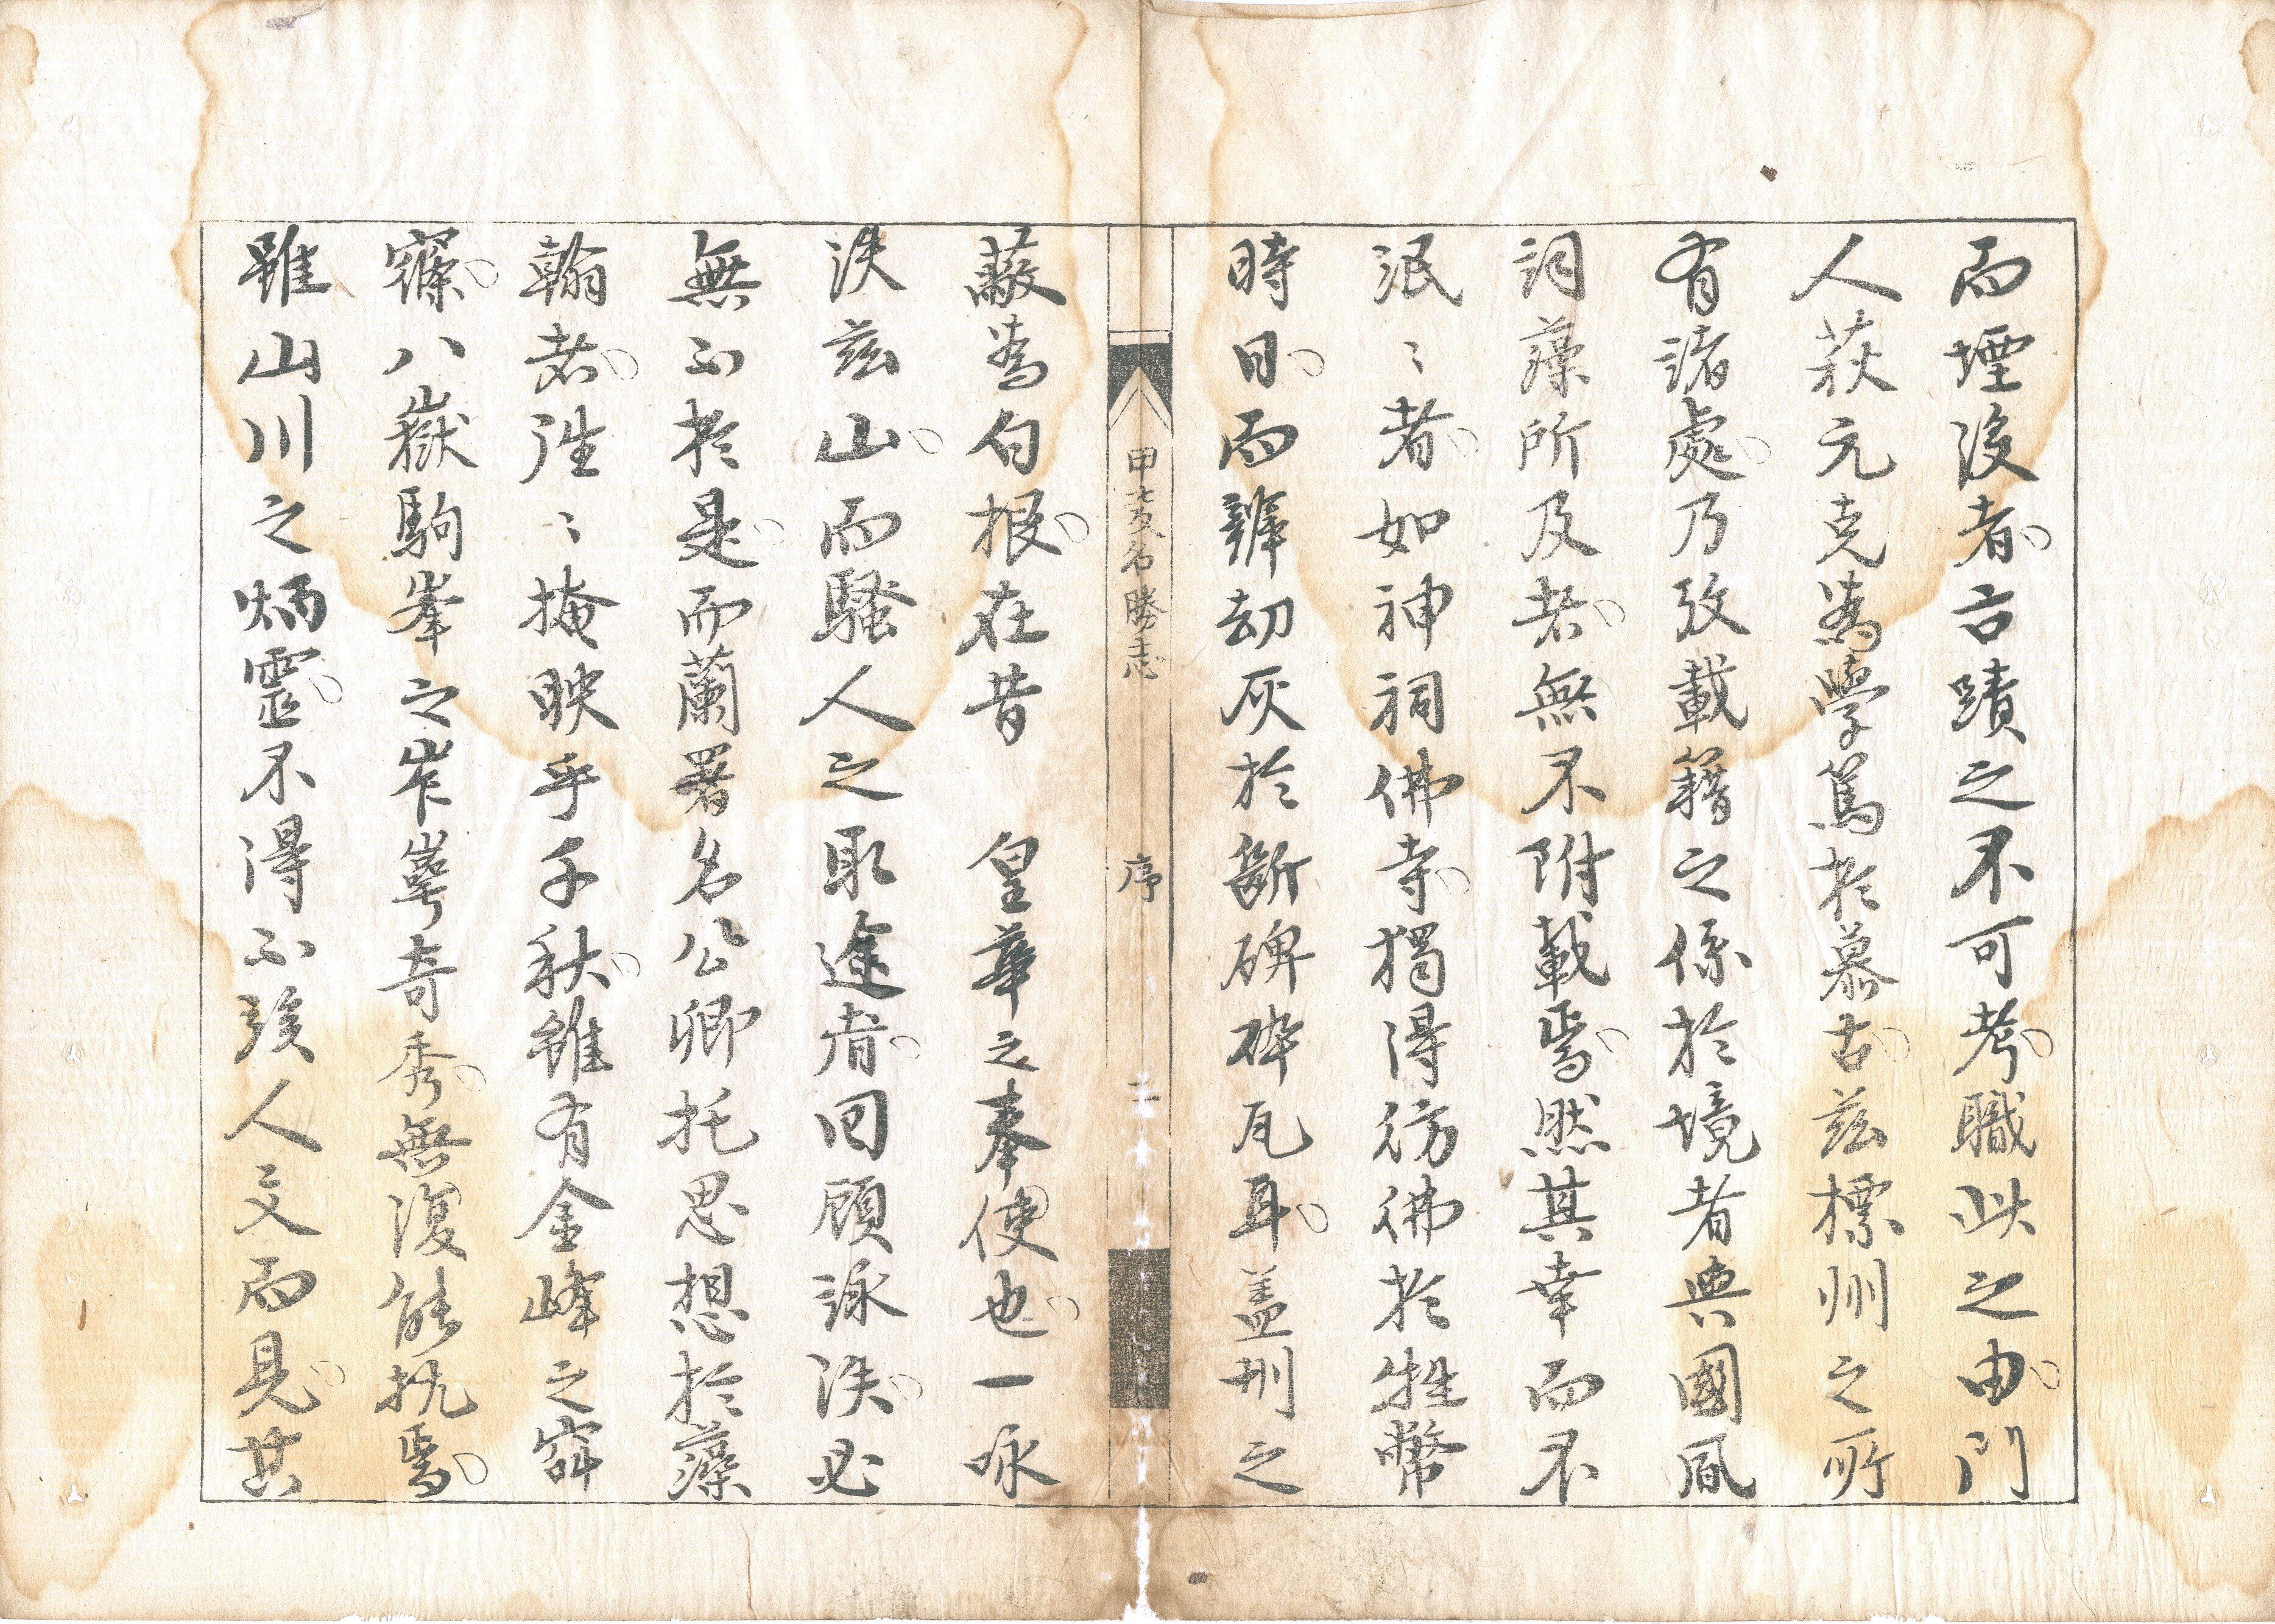 而堙沒者古蹟之不可考職此之由門
人荻元克為學篤於慕古茲標州之所
有諸處乃攷載籍之係於境者與國風
詞藻所及者無不附載焉然其幸而不
泯〻者如神祠佛寺獨得彷彿於牲幣
時日而辨劫灰於斷碑碎瓦耳蓋州之
甲斐名勝志 序 二
蔽為句根在昔 皇華之奉使也一咏
泆茲山而騷人之取途者回顧詠泆必
無不於是而蘭署名公卿托思想於藻
翰者往〻掩映乎千秋雖有金峰之窣
窱八嶽駒峯之岝崿奇秀無復能抗焉
雖山川之炳靈不得不竢人文而見其